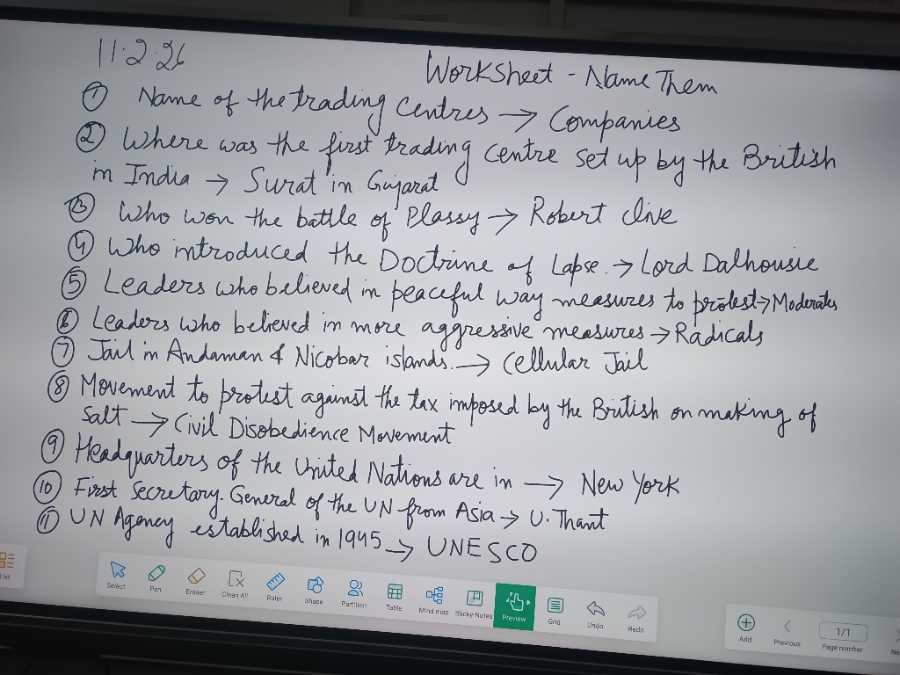 11.2.26
Worksheet - Name Them
① Name of the trading centres → Companies
② Where was the first trading centre set up by the British
in India → Surat in Gujarat
③ Who won the battle of Plassy → Robert Clive
④ Who introduced the Doctrine of Lapse. → Lord Dalhousie
⑤ Leaders who believed in peaceful way measures to protest → Moderates
⑥ Leaders who believed in more aggressive measures → Radicals
⑦ Jail in Andaman & Nicobar islands. → Cellular Jail
⑧ Movement to protest against the tax imposed by the British on making of
Salt → Civil Disobedience Movement
⑨ Headquarters of the United Nations are in → New York
⑩ First Secretary. General of the UN from Asia → U. Thant
⑪ UN Agency established in 1945 → UNESCO
Select Pen Eraser Clean All Ruler Shape Partition Table Mind map Sticky Notes Preview Grid Undo Redo
Add Previous 1/1 Page number